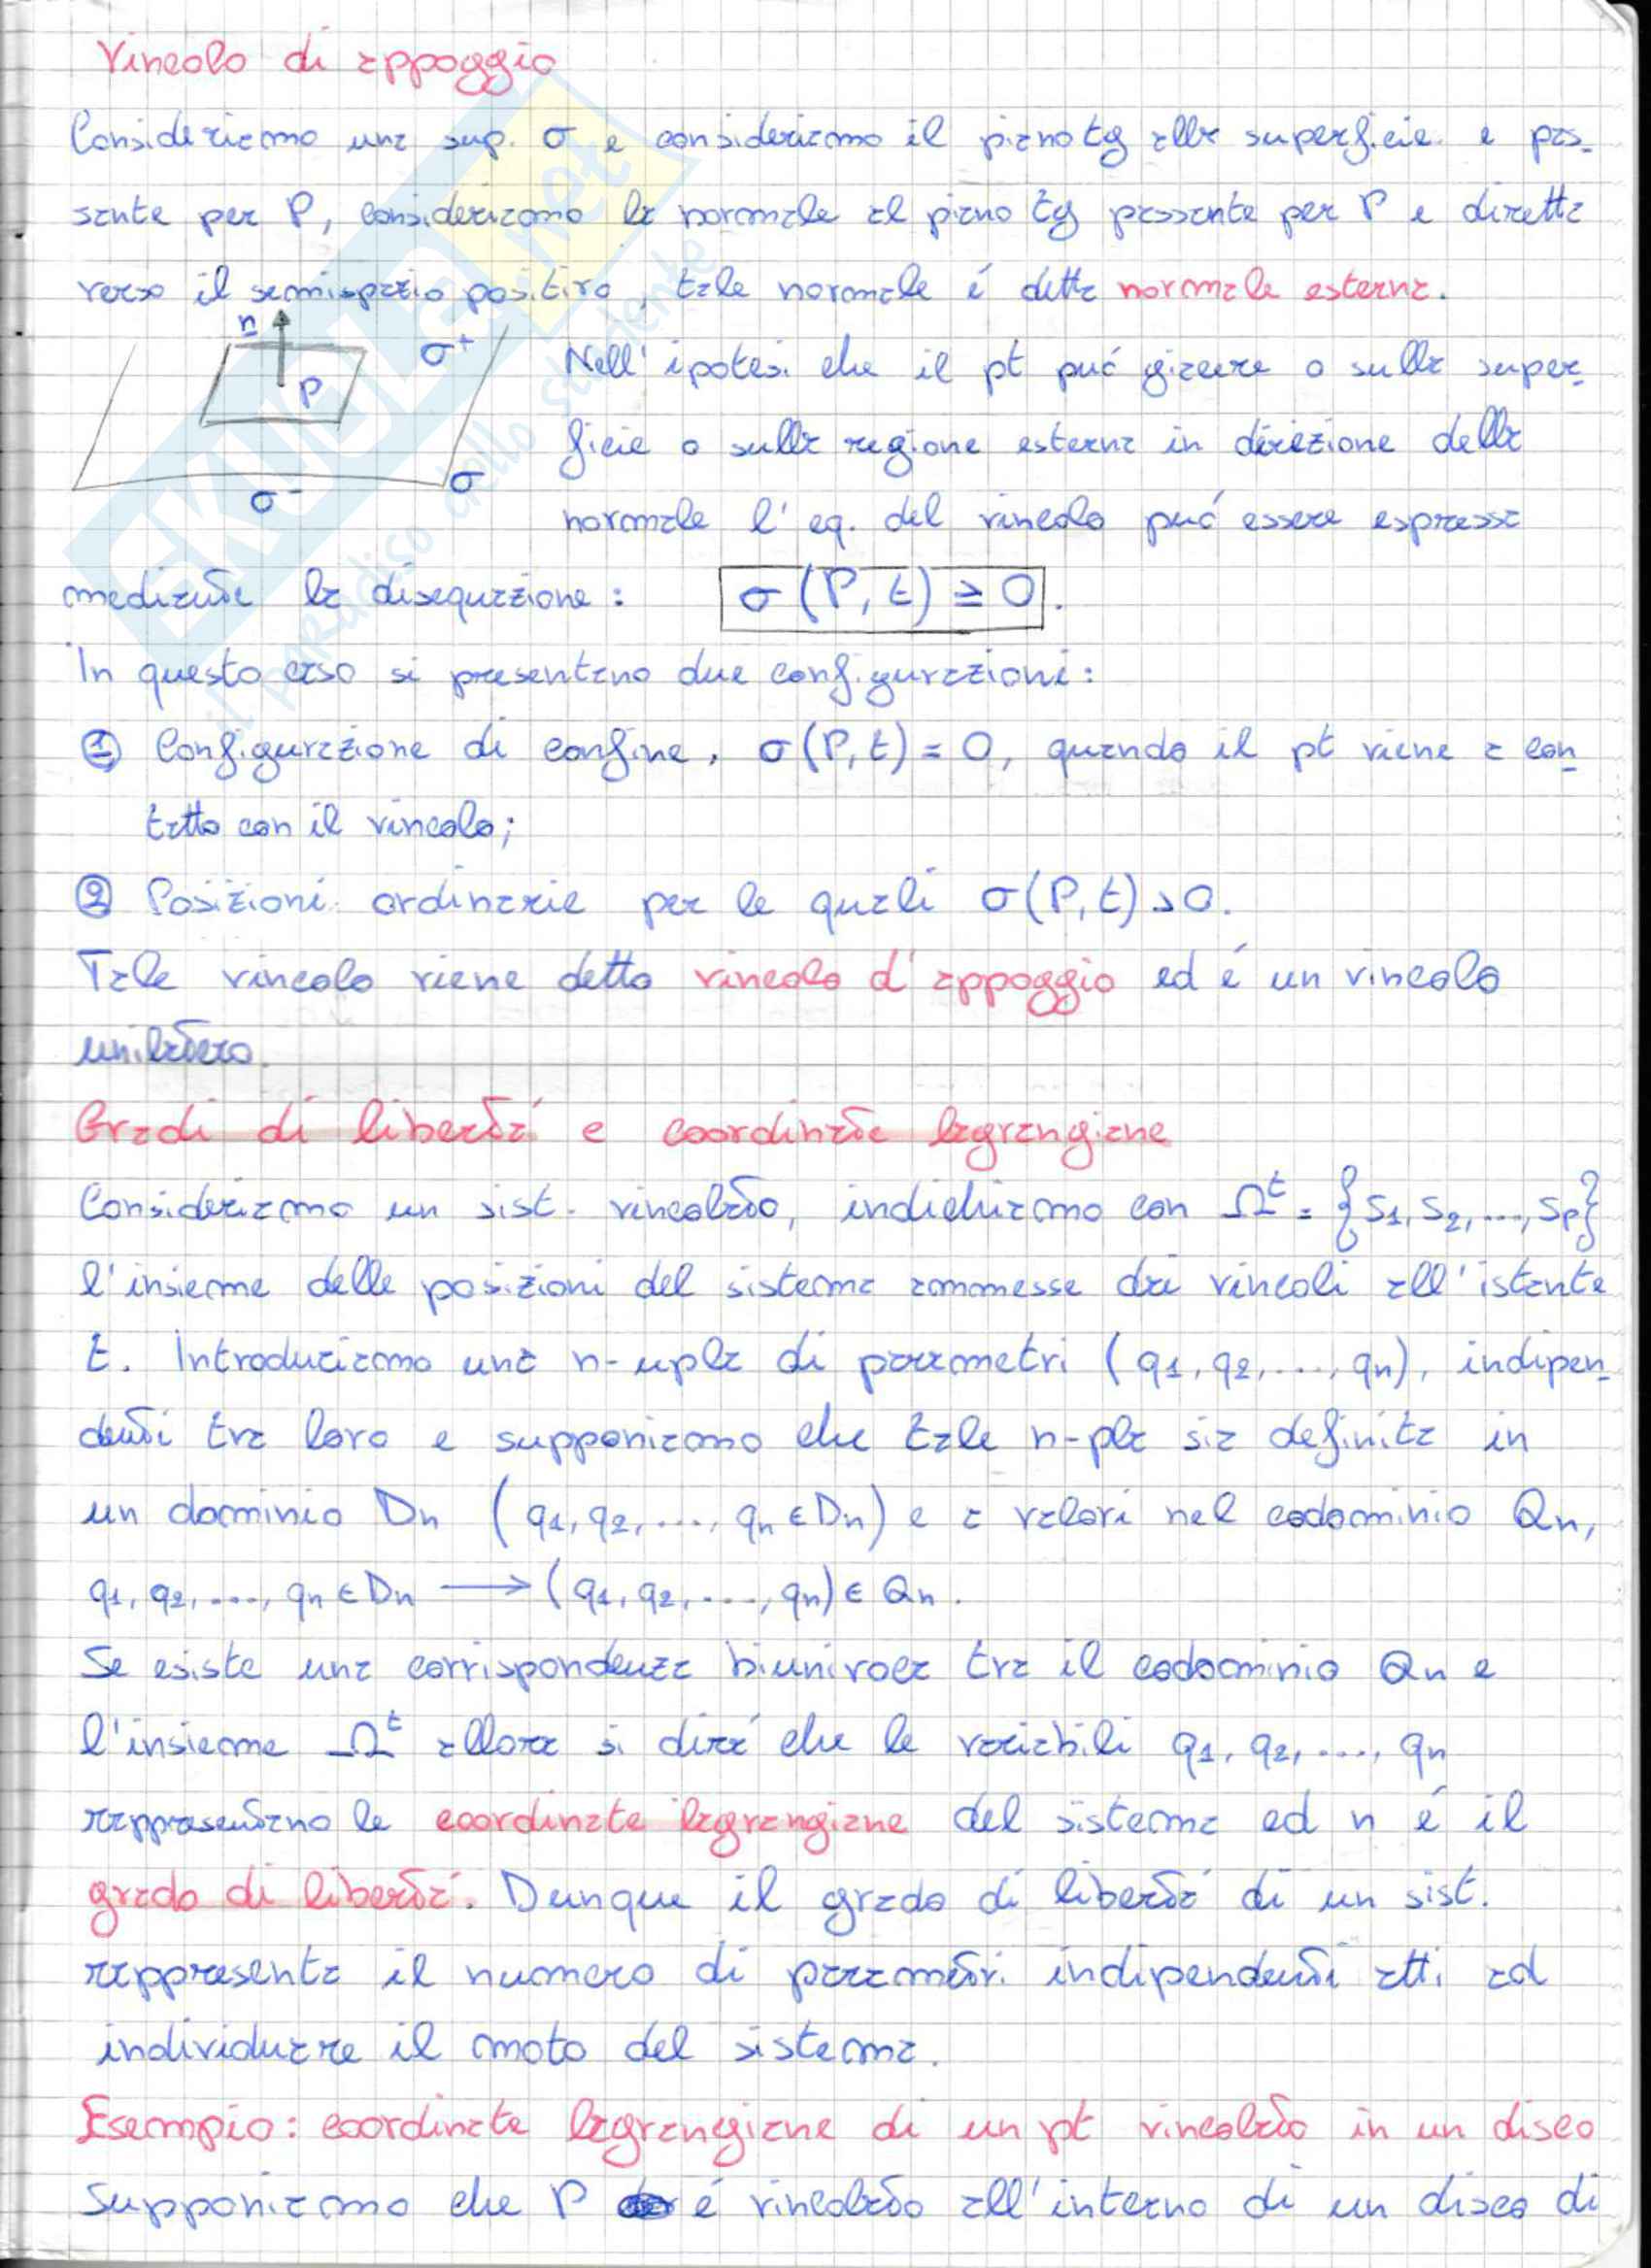 Vincolo di appoggio
Consideriamo una sup. σ e consideriamo il piano tg alla superficie e pas-
sante per P, consideriamo la normale al piano tg passante per P e diretta
verso il semispazio positivo, tale normale é detta normale esterna.
n
σ+
P
σ
σ-
Nell'ipotesi che il pt puó giacere o sulla super-
ficie o sulla regione esterna in direzione della
normale l'eq. del vincolo puó essere espressa
mediante la disequazione: σ(P,t) ≥ 0.
In questo caso si presentano due configurazioni:
① Configurazione di confine, σ(P,t) = 0, quando il pt viene a con-
tatto con il vincolo;
② Posizioni ordinarie per le quali σ(P,t) > 0.
Tale vincolo viene detto vincolo d'appoggio ed é un vincolo
unilatero.
Gradi di libertá e coordinate lagrangiane
Consideriamo un sist. vincolato, indichiamo con Ωᵗ = {S1, S2, ..., Sp}
l'insieme delle posizioni del sistema ammesse dai vincoli all'istante
t. Introduciamo una n-upla di parametri (q1, q2, ..., qn), indipen-
denti tra loro e supponiamo che tale n-pla sia definita in
un dominio Dn (q1, q2, ..., qn ∈ Dn) e a valori nel codominio Qn,
q1, q2, ..., qn ∈ Dn → (q1, q2, ..., qn) ∈ Qn.
Se esiste una corrispondenza biunivoca tra il codominio Qn e
l'insieme Ωᵗ allora si dirá che le variabili q1, q2, ..., qn
rappresentano le coordinate lagrangiane del sistema ed n é il
grado di libertá. Dunque il grado di libertá di un sist.
rappresenta il numero di parametri indipendenti atti ad
individuare il moto del sistema.
Esempio: coordinate lagrangiane di un pt vincolato in un disco
Supponiamo che P é vincolato all'interno di un disco di
SKUOLA.net
il paradiso dello studente